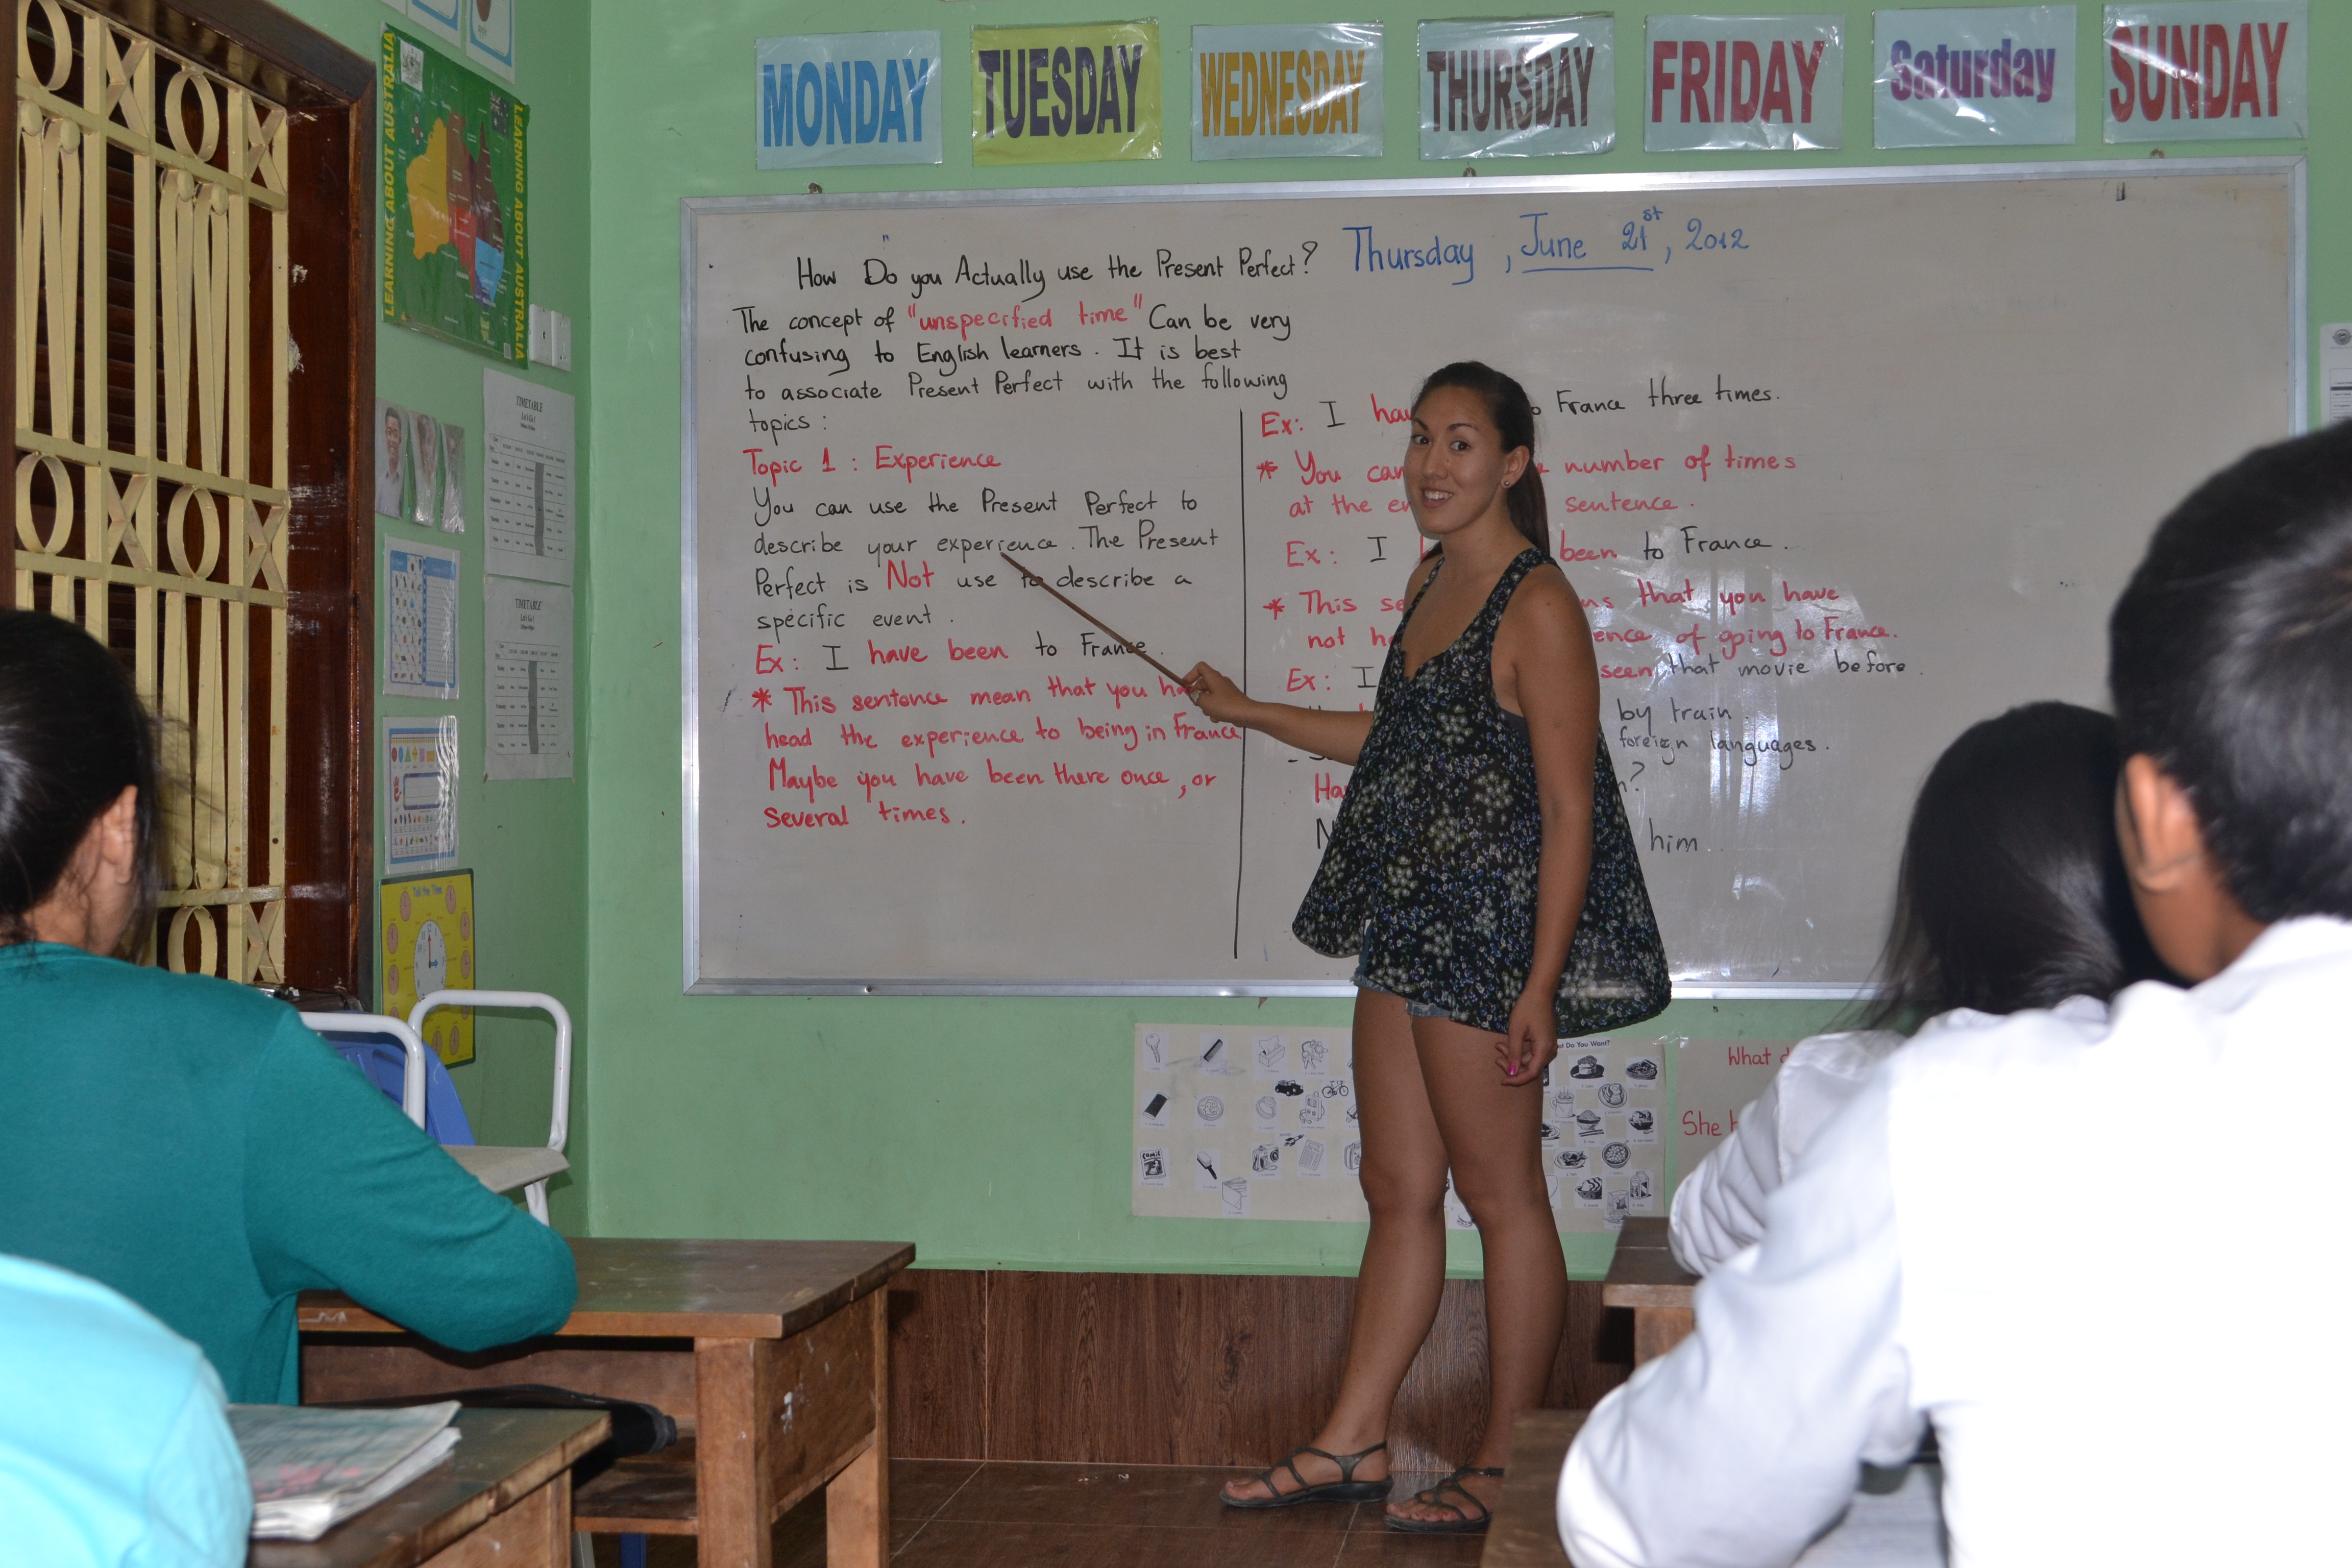 MONDAY
TUESDAY
WEDNESDAY
THURSDAY
FRIDAY
Saturday
SUNDAY
LEARNING ABOUT AUSTRALIA
LEARNING ABOUT AUSTRALIA
TIMETABLE
TIMETABLE
Tell the Time
Thursday, June 21st, 2012
How Do you Actually use the Present Perfect?
The concept of "unspecified time" Can be very
confusing to English learners. It is best
to associate Present Perfect with the following
topics:
Topic 1: Experience
You can use the Present Perfect to
describe your experience. The Present
Perfect is Not use to describe a
specific event.
Ex: I have been to France.
* This sentence mean that you
head the experience to being in France
Maybe you have been there once, or
several times.
Ex: I France three times.
* You can number of times
at the sentence.
Ex: I been to France.
* This that you have
not of going to France.
Ex: I seen that movie before.
by train
foreign languages.
him.
Do You Want?
What
She